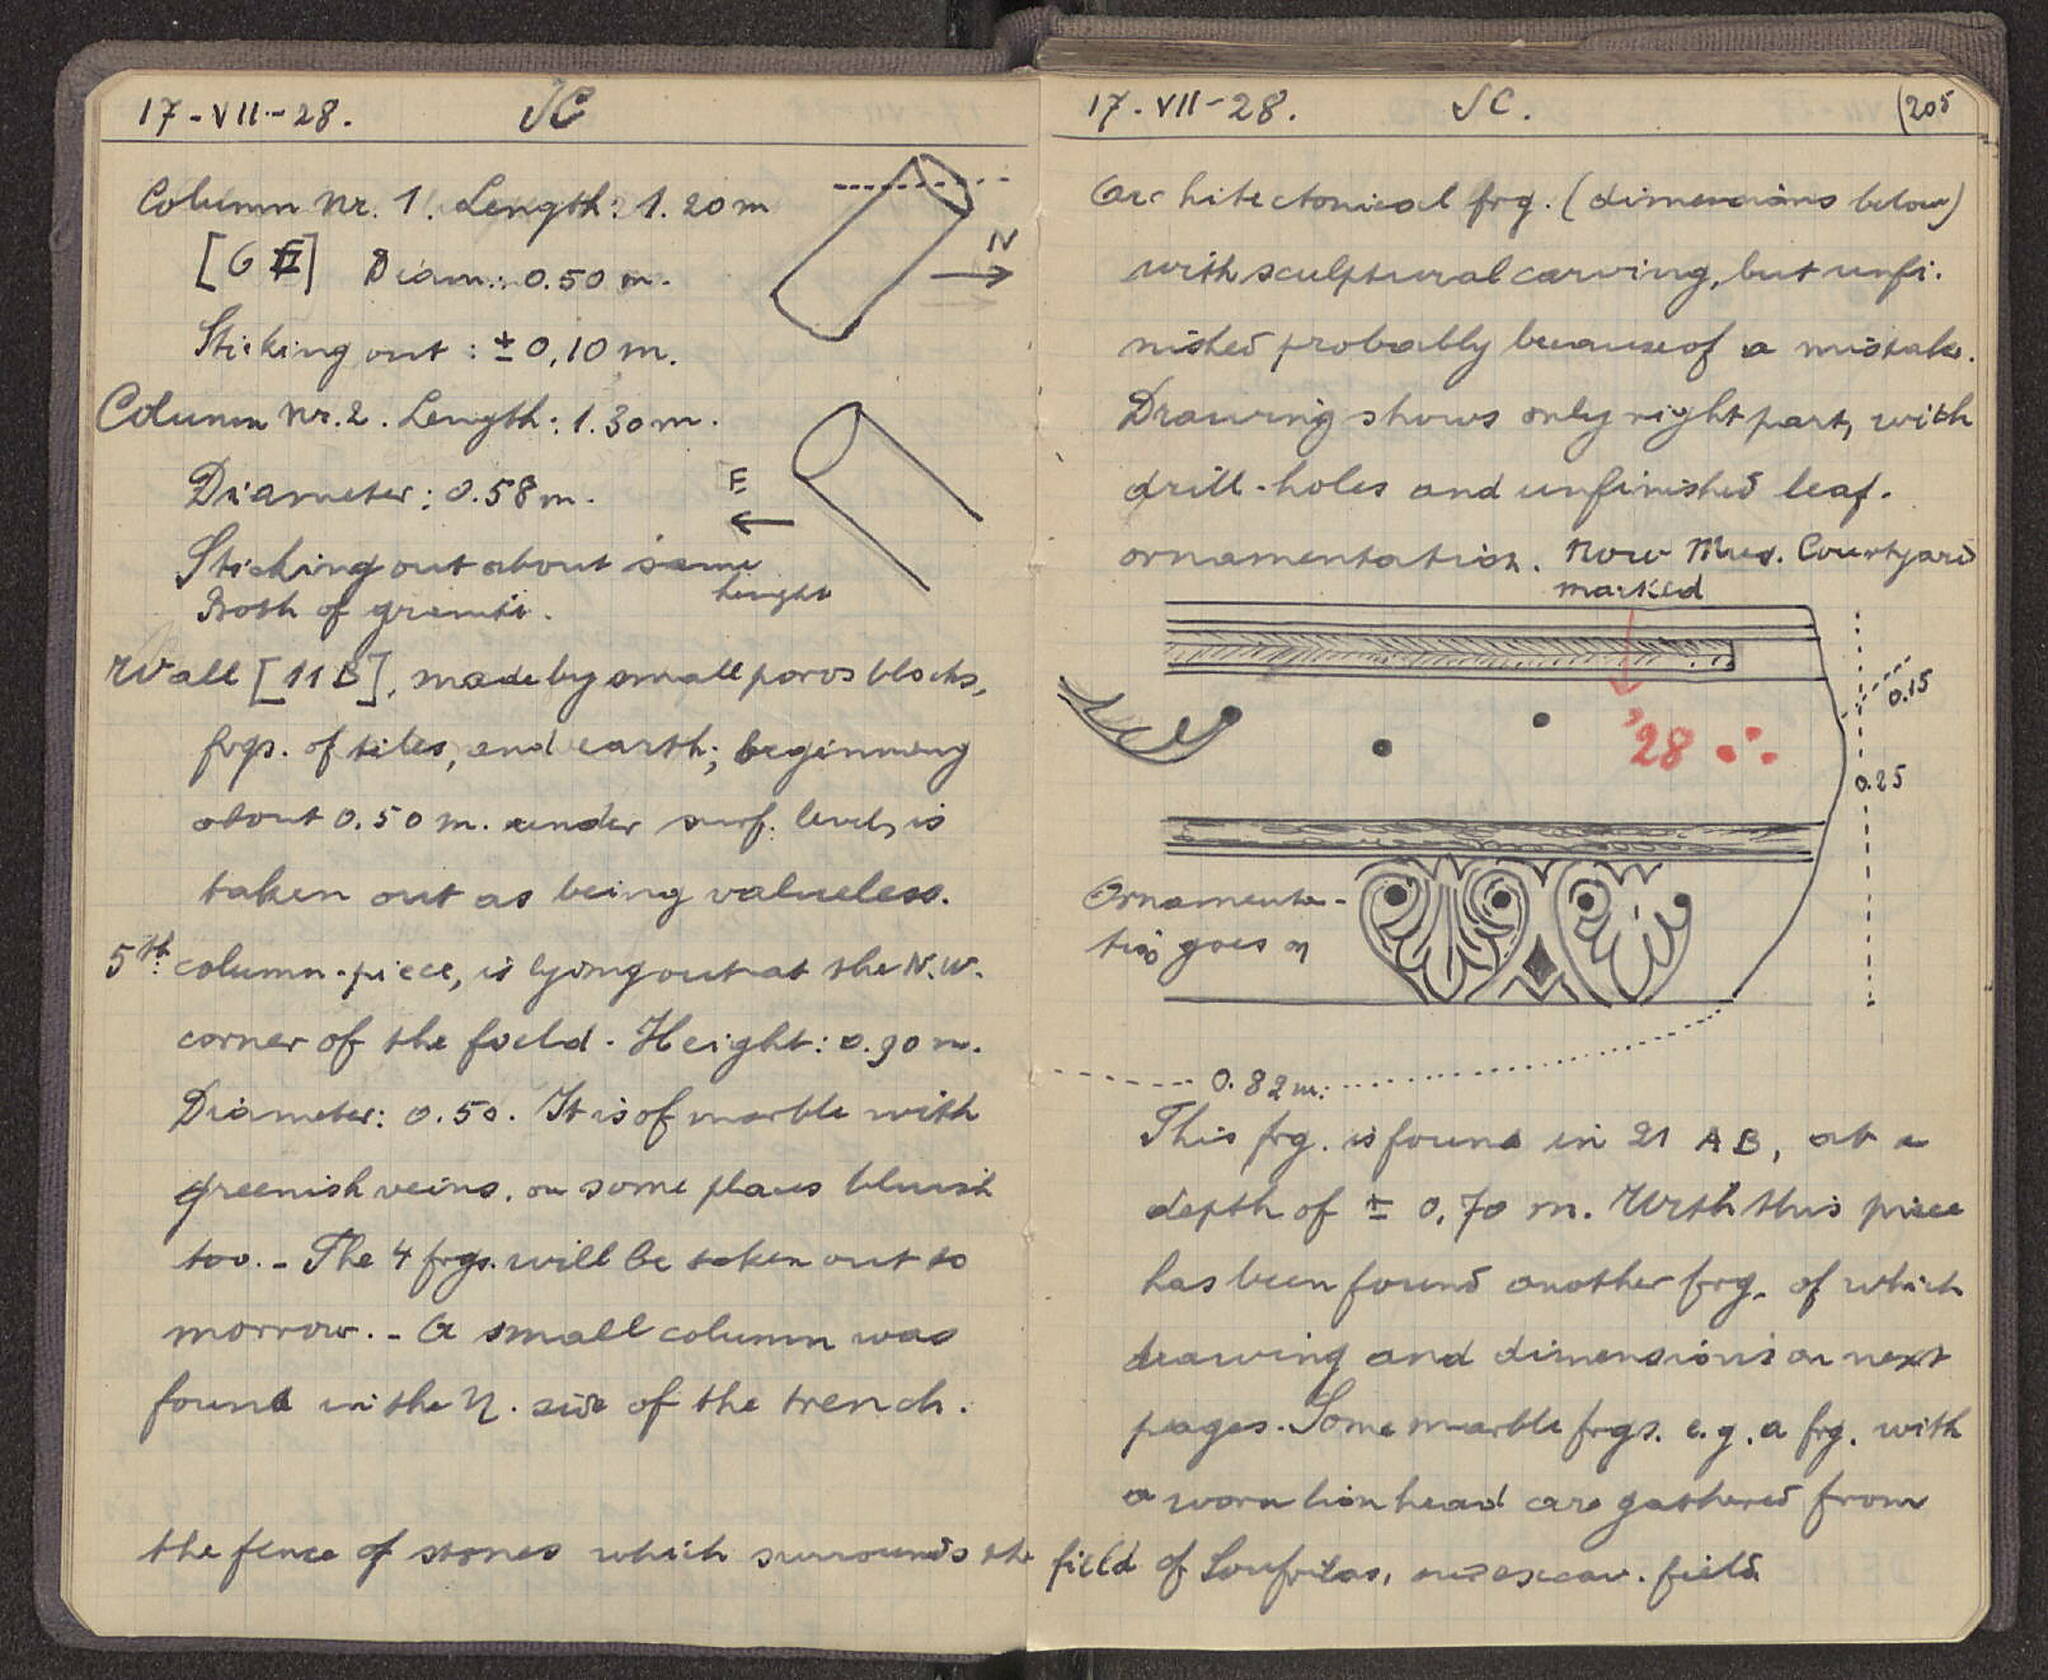 17-VII-28. JC
Column Nr. 1. Length: 1.20 m
[6 E] Diam.: 0.50 m.
N
Sticking out: ± 0,10 m.
Column Nr. 2. Length: 1.30 m.
Diameter: 0.58 m.
E
Sticking out about same
height
Both of granite.
Wall [11 B], made by small poros blocks,
frgs. of tiles, and earth; beginning
about 0.50 m. under surf. level, is
taken out as being valueless.
5th column-piece, is lying out at the N.W.
corner of the field. Height: 0.90 m.
Diameter: 0.50. It is of marble with
greenish veins, on some places bluish
too. - The 4 frgs. will be taken out to
morrow. - A small column was
found in the N. side of the trench.
17-VII-28. JC. (205
Architectonical frg. (dimensions below)
with sculptural carving, but unfi-
nished probably because of a mistake.
Drawing shows only right part, with
drill-holes and unfinished leaf-
ornamentation. Now Mus. Courtyard
marked
0.15
'28
0.25
Ornamenta-
tion goes on
0.82 m.
This frg. is found in 21 AB, at a
depth of ± 0,70 m. With this piece
has been found another frg. of which
drawing and dimensions on next
pages. Some marble frgs. e.g. a frg. with
a worn lion head are gathered from
the fence of stones which surrounds the field of Loufritas, our excav. field